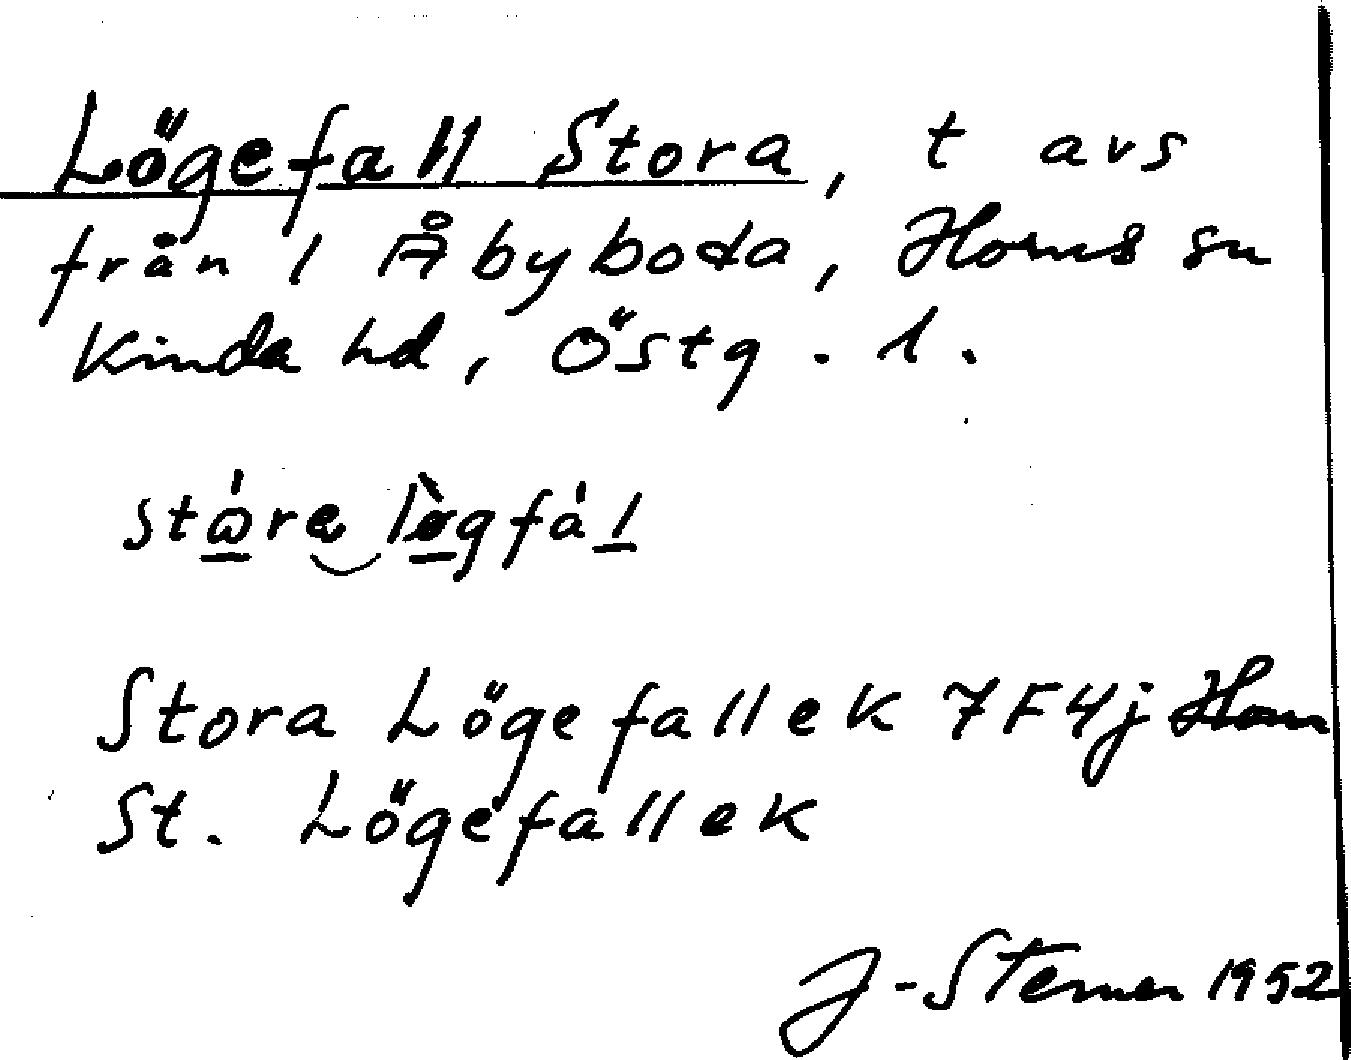 Lögefall Stora, t avs
från 1 Åbyboda, Horns sn
Kinda hd, Östg. l.
stɷ́re lø̀gfál
Stora Lögefall ek 7F4j Horn
St. Lögefall ek
J-Sterner 1952